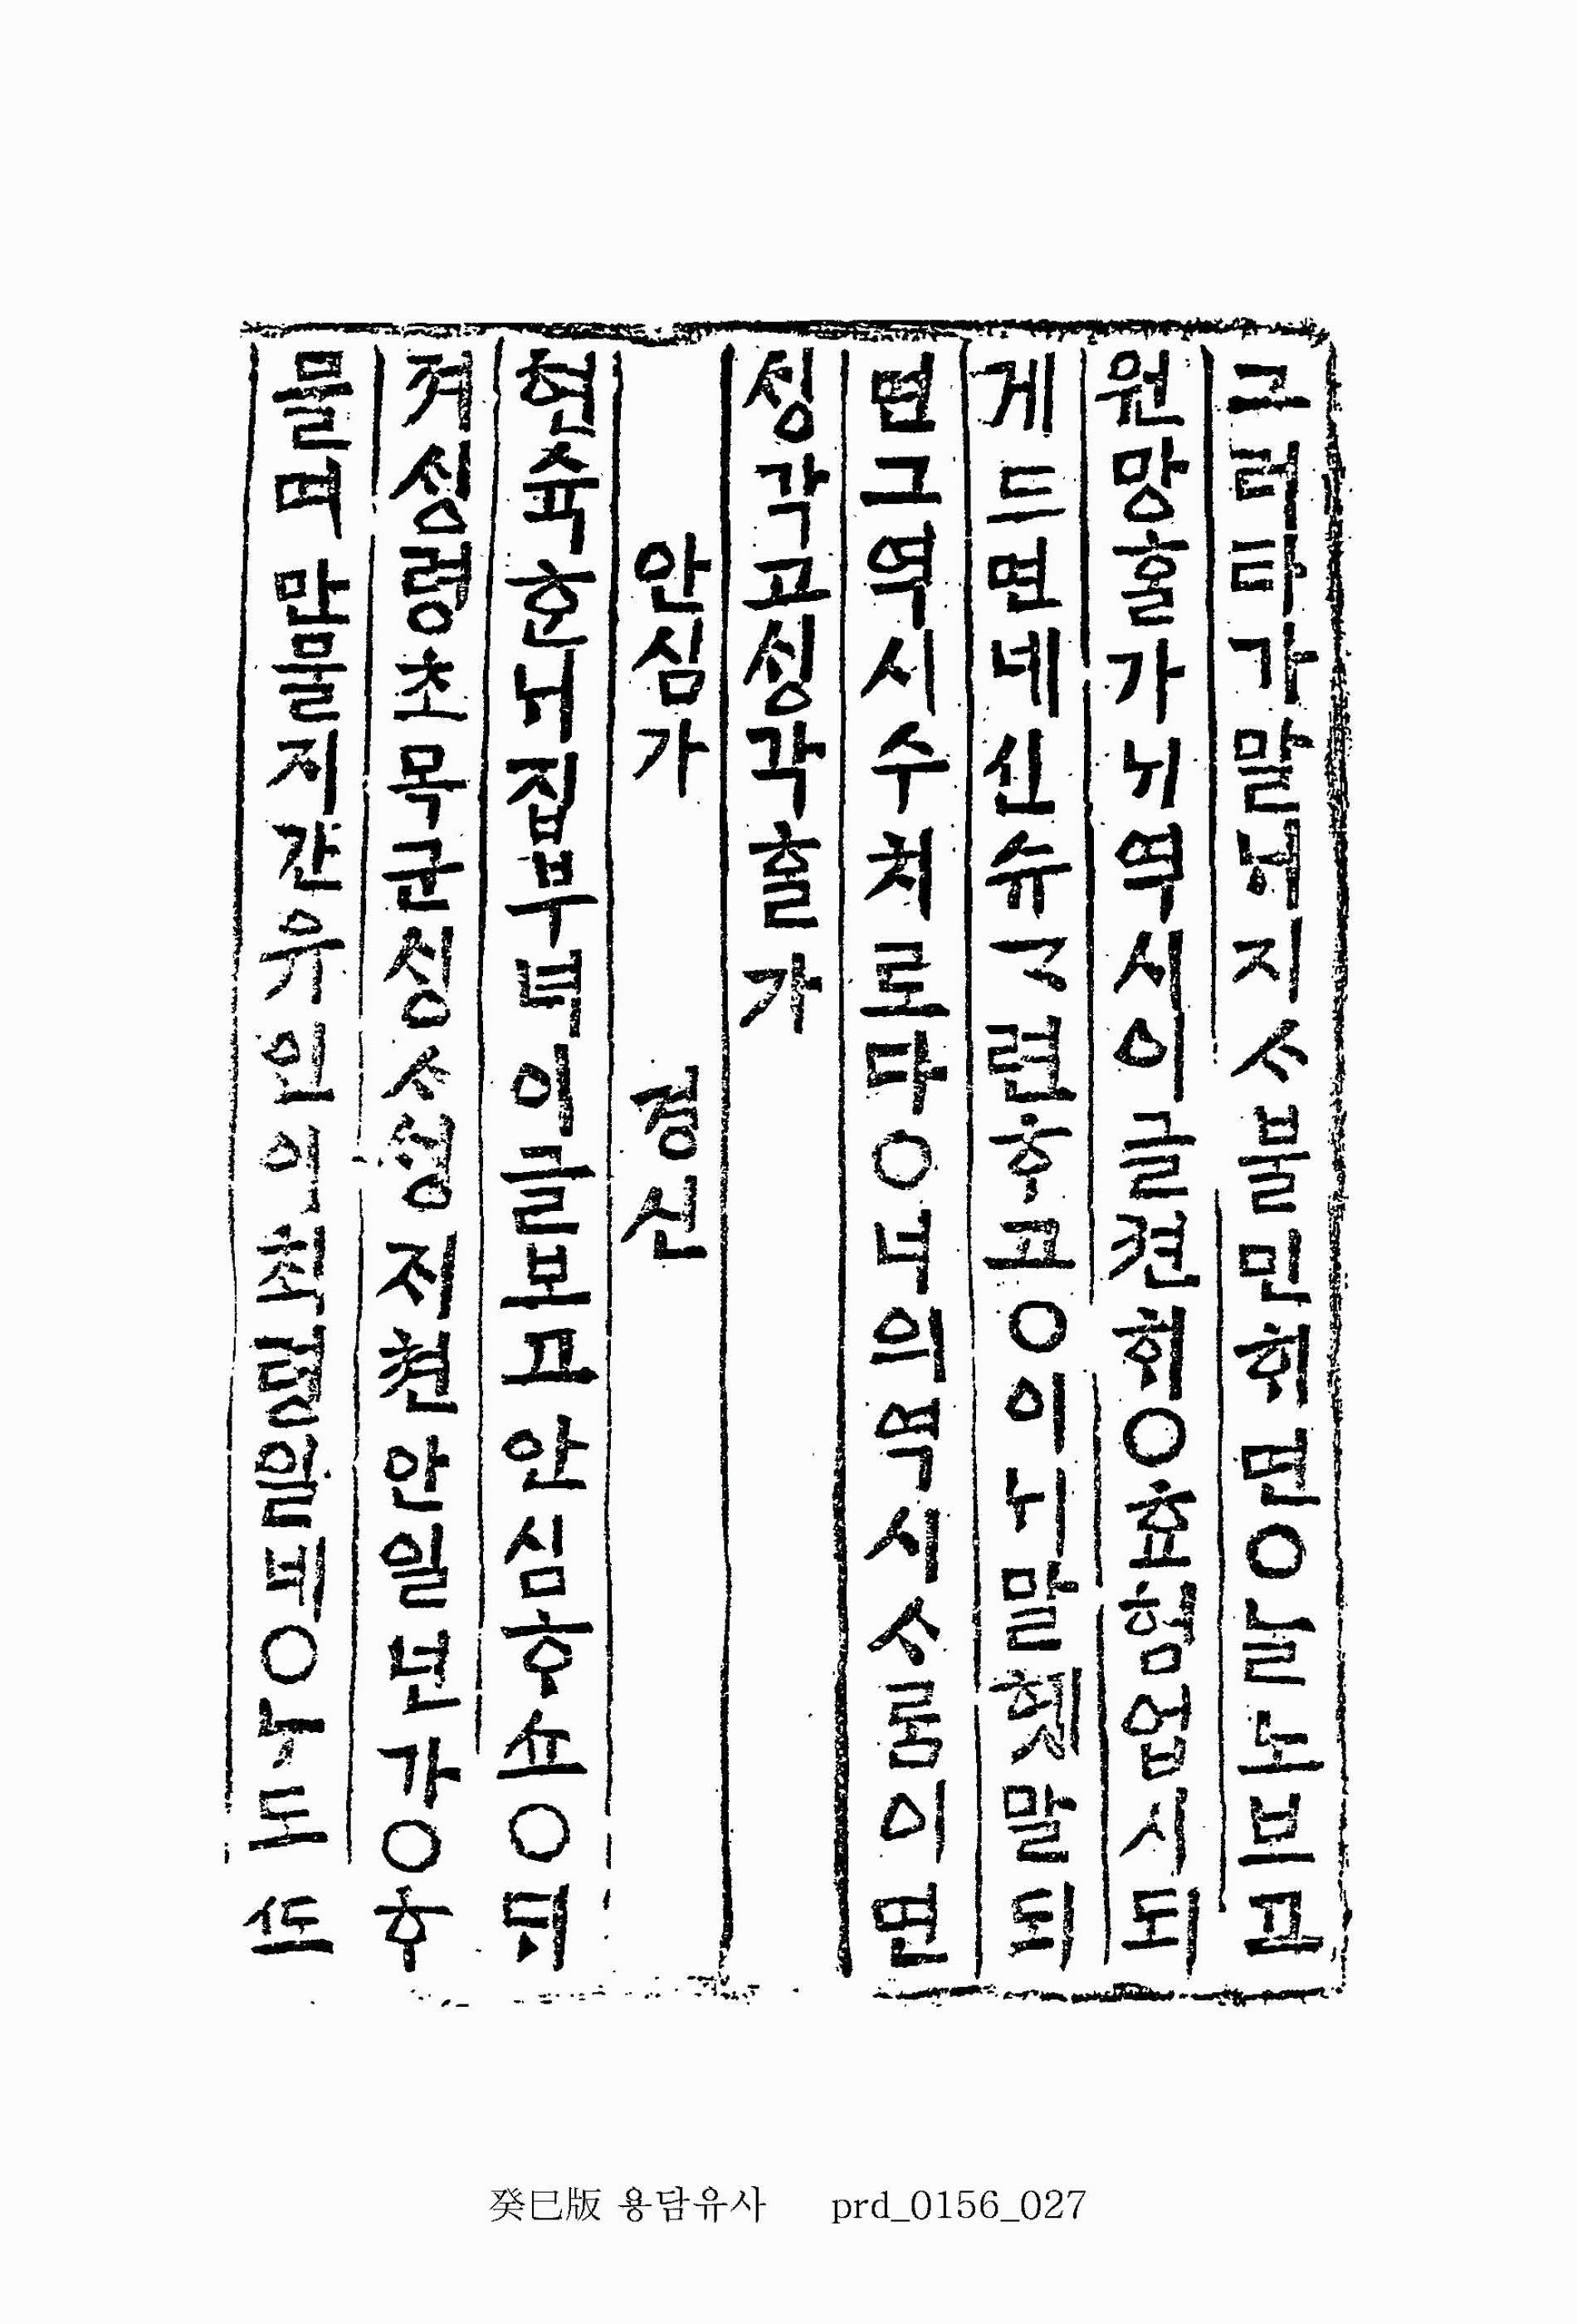 그러타가말ᄂᆡ지ᄉᆞ불민ᄒᆡ면○ᄂᆞᆯ노보고
원망ᄒᆞᆯ가ᄂᆡ역시이글젼ᄒᆡ○효험업시되
게드면네신슈ᄀᆞ련ᄒᆞ고○이ᄂᆡ말헷말되
면그역시수치로다○너의역시ᄉᆞᄅᆞᆷ이면
ᄉᆡᆼ각고ᄉᆡᆼ각ᄒᆞᆯ가
안심가 경신
현슉ᄒᆞᆫᄂᆡ집부녀이글보고안심ᄒᆞ쇼○ᄃᆡ
져ᄉᆡᆼ령초목군ᄉᆡᆼᄉᆞᄉᆡᆼᄌᆡ쳔안일넌가○ᄒᆞ
물며만물지간유인이최령일네○ᄂᆞ도ᄯᅩ
癸巳版 용담유사 prd_0156_027